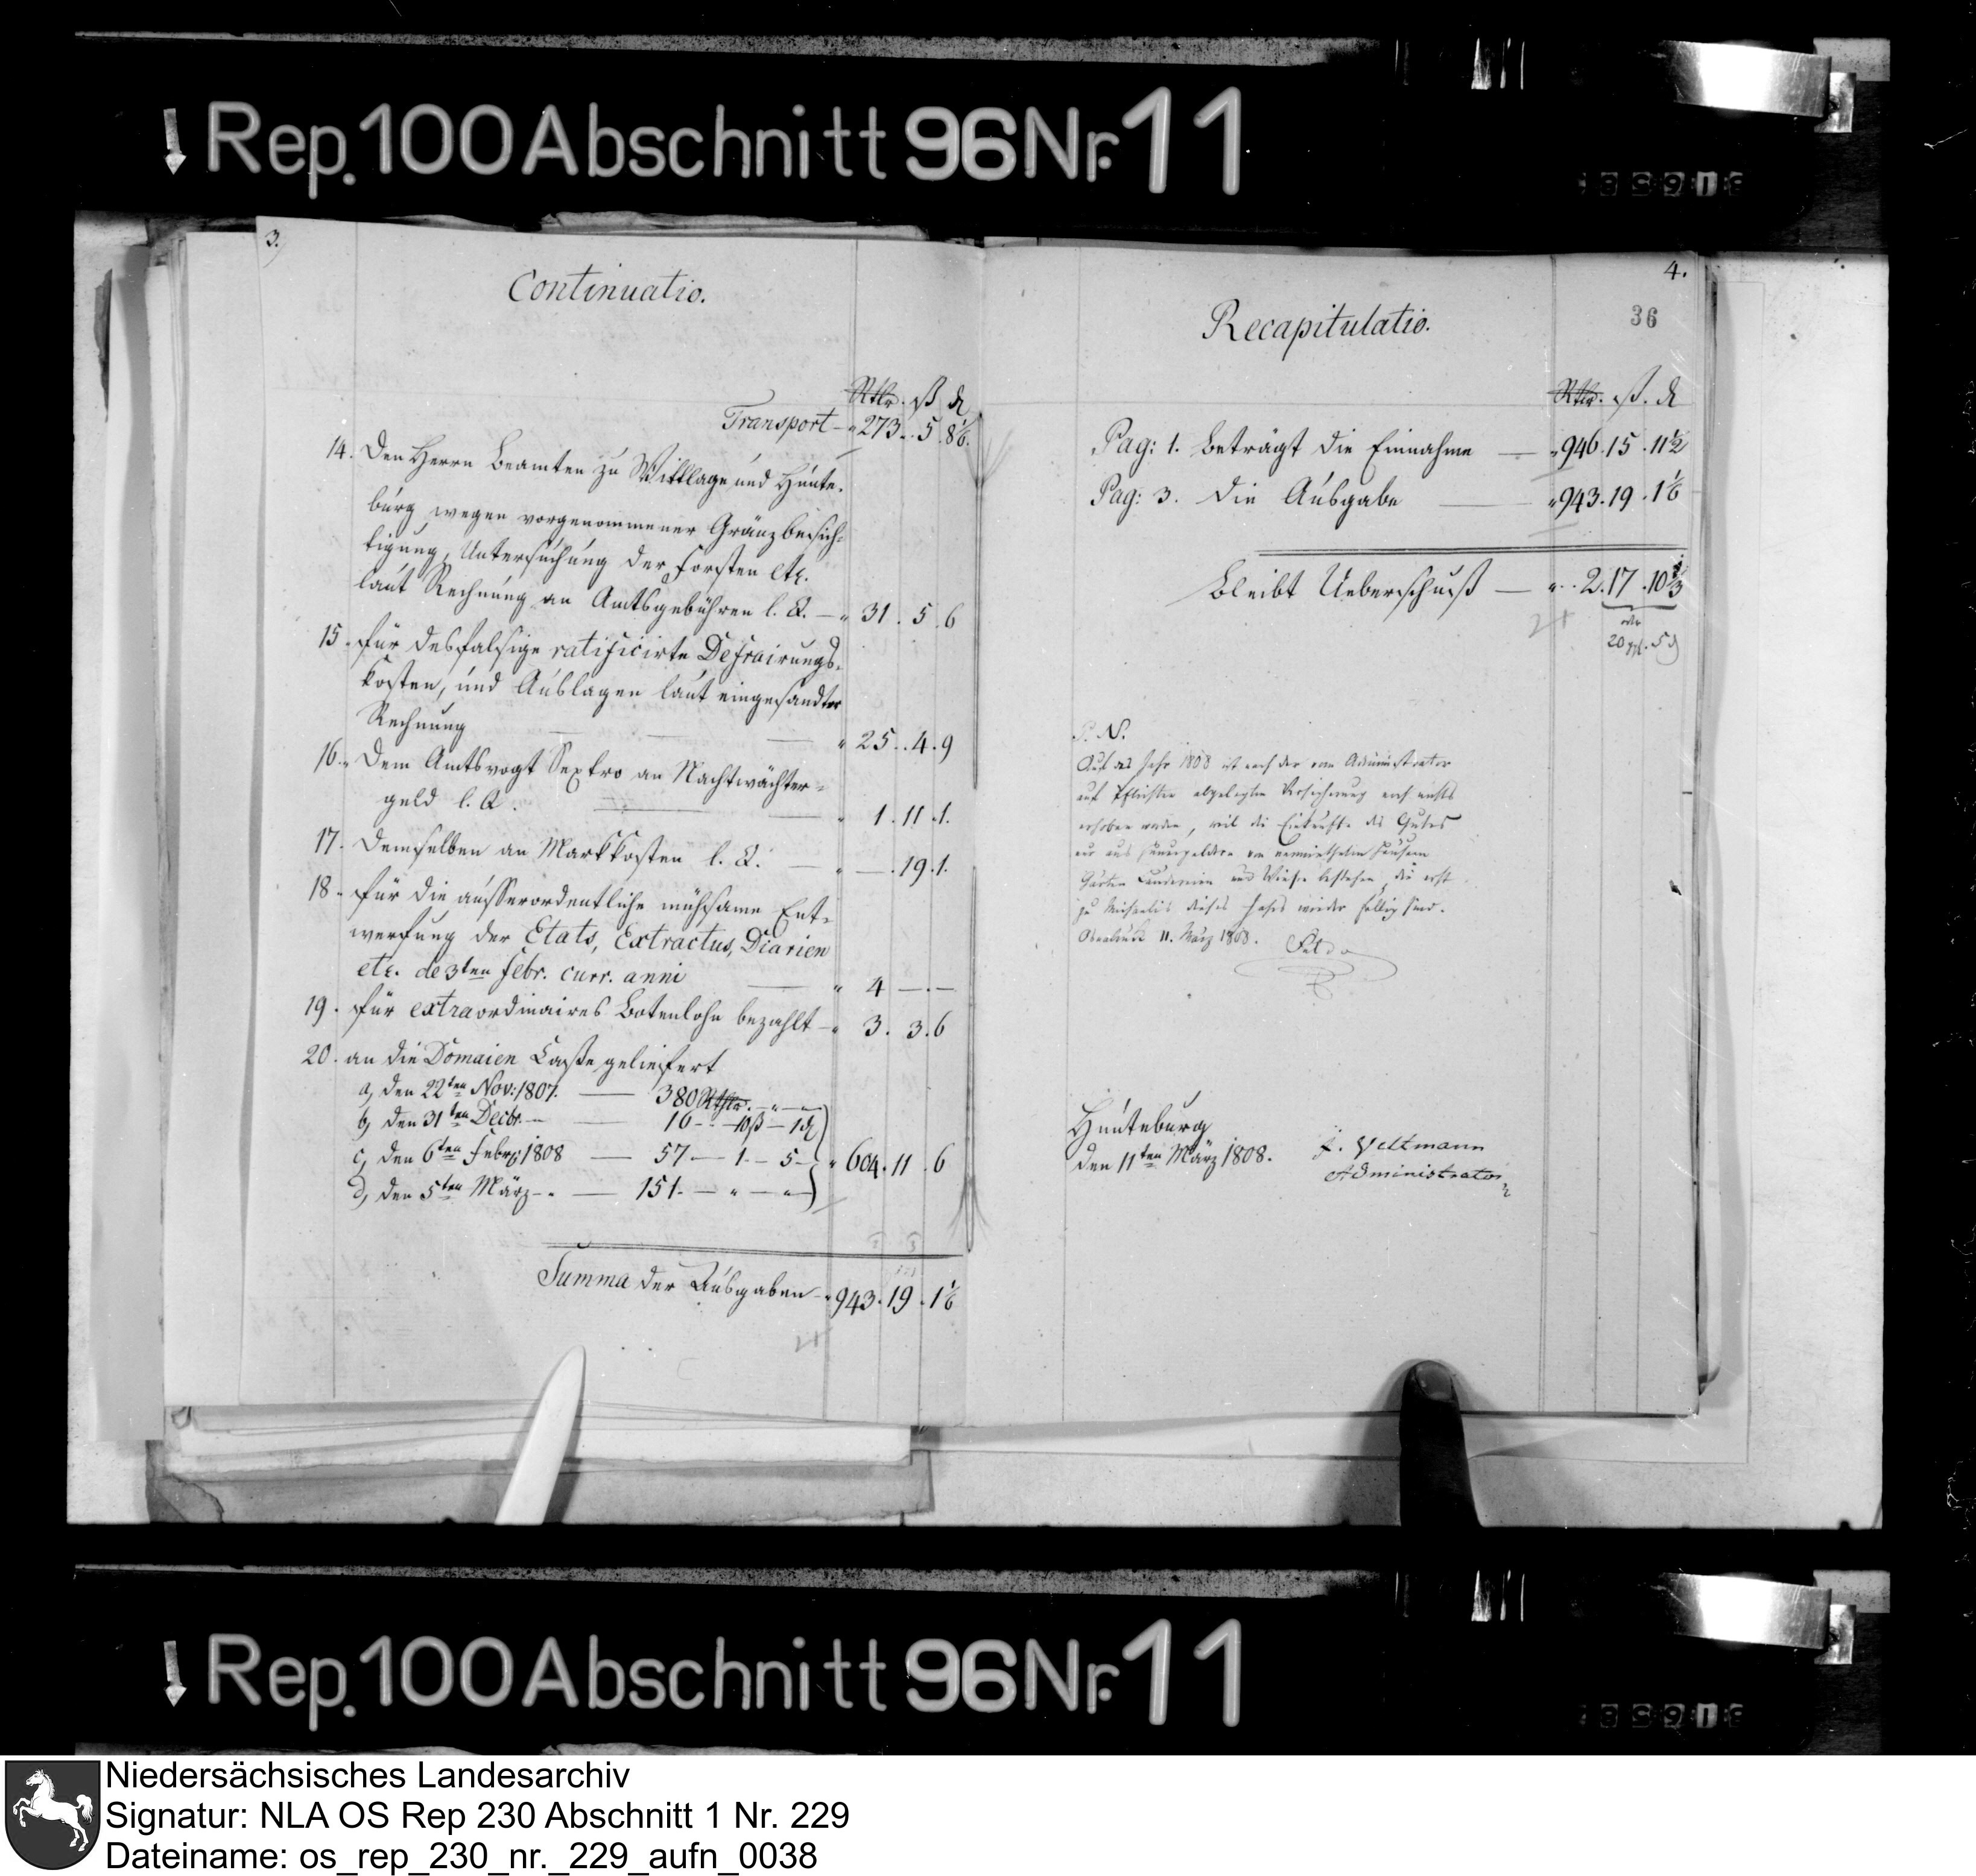 ↓ Rep. 100 Abschnitt 96 Nr. 11
3.
Continuatio.
Rthlr. ß ₰
Transport — " 273. 5. 8 1/6.
14. Den Herrn Beamten zu Wittlage und Hünte-
burg wegen vorgenommener Gränzbesich-
tigung, Untersuchung der Forsten etc.
laut Rechnung an Amtsgebühren l. Q. — " 31. 5. 6
15. für desfalsige ratificirte Defrairungs-
kosten, und Auslagen laut eingesandter
Rechnung — — " 25. 4. 9
16. Dem Amtsvogt Sextro an Nachtwächter-
geld l. Q. — — " 1. 11. 1.
17. Demselben an Markkosten l. Q. — " —. 19. 1.
18. für die ausserordentliche mühsame Ent-
werfung der Etats, Extractus, Diarien
etc. de 3ten Febr. curr. anni — " 4 —.—
19. für extraordinaires Botenlohn bezahlt — " 3. 3. 6
20. an die Domaien Casse geliefert
a, den 22ten Nov: 1807. — 380 Rthlr. " — "
b, den 31ten Decbr. — — 16 — 10ß — 1₰
c, den 6ten Febr. 1808 — 57 — 1 — 5 — " 604. 11. 6
d, den 5ten März — " — 151. — " — "
Summa der Ausgaben — " 943. 19. 1 1/6
4.
36
Recapitulatio.
Rthlr. ß. ₰
Pag: 1. Beträgt die Einnahme — " 946. 15. 11 1/2
Pag: 3. die Ausgabe — " 943. 19. 1 1/6
Bleibt Ueberschuß — " 2. 17. 10 1/3
oder
20 ggl. 5 ₰
P. N.
Auf das Jahr 1808 ist nach der vom Administrator
auf Pflichten abgelegten Versicherung noch nichts
erhoben worden, weil die Einkünfte des Gutes
nur aus Heuergeldern von vermietheten Häusern
Gärten Ländereien und Wiesen bestehen, die erst
zu Michaelis dieses Jahrs wieder fällig sind.
Osnabrück 11. März 1808.
Hünteburg
den 11ten März 1808.
F. Veltmann
Administrator
↓ Rep. 100 Abschnitt 96 Nr. 11
Niedersächsisches Landesarchiv
Signatur: NLA OS Rep 230 Abschnitt 1 Nr. 229
Dateiname: os_rep_230_nr._229_aufn_0038